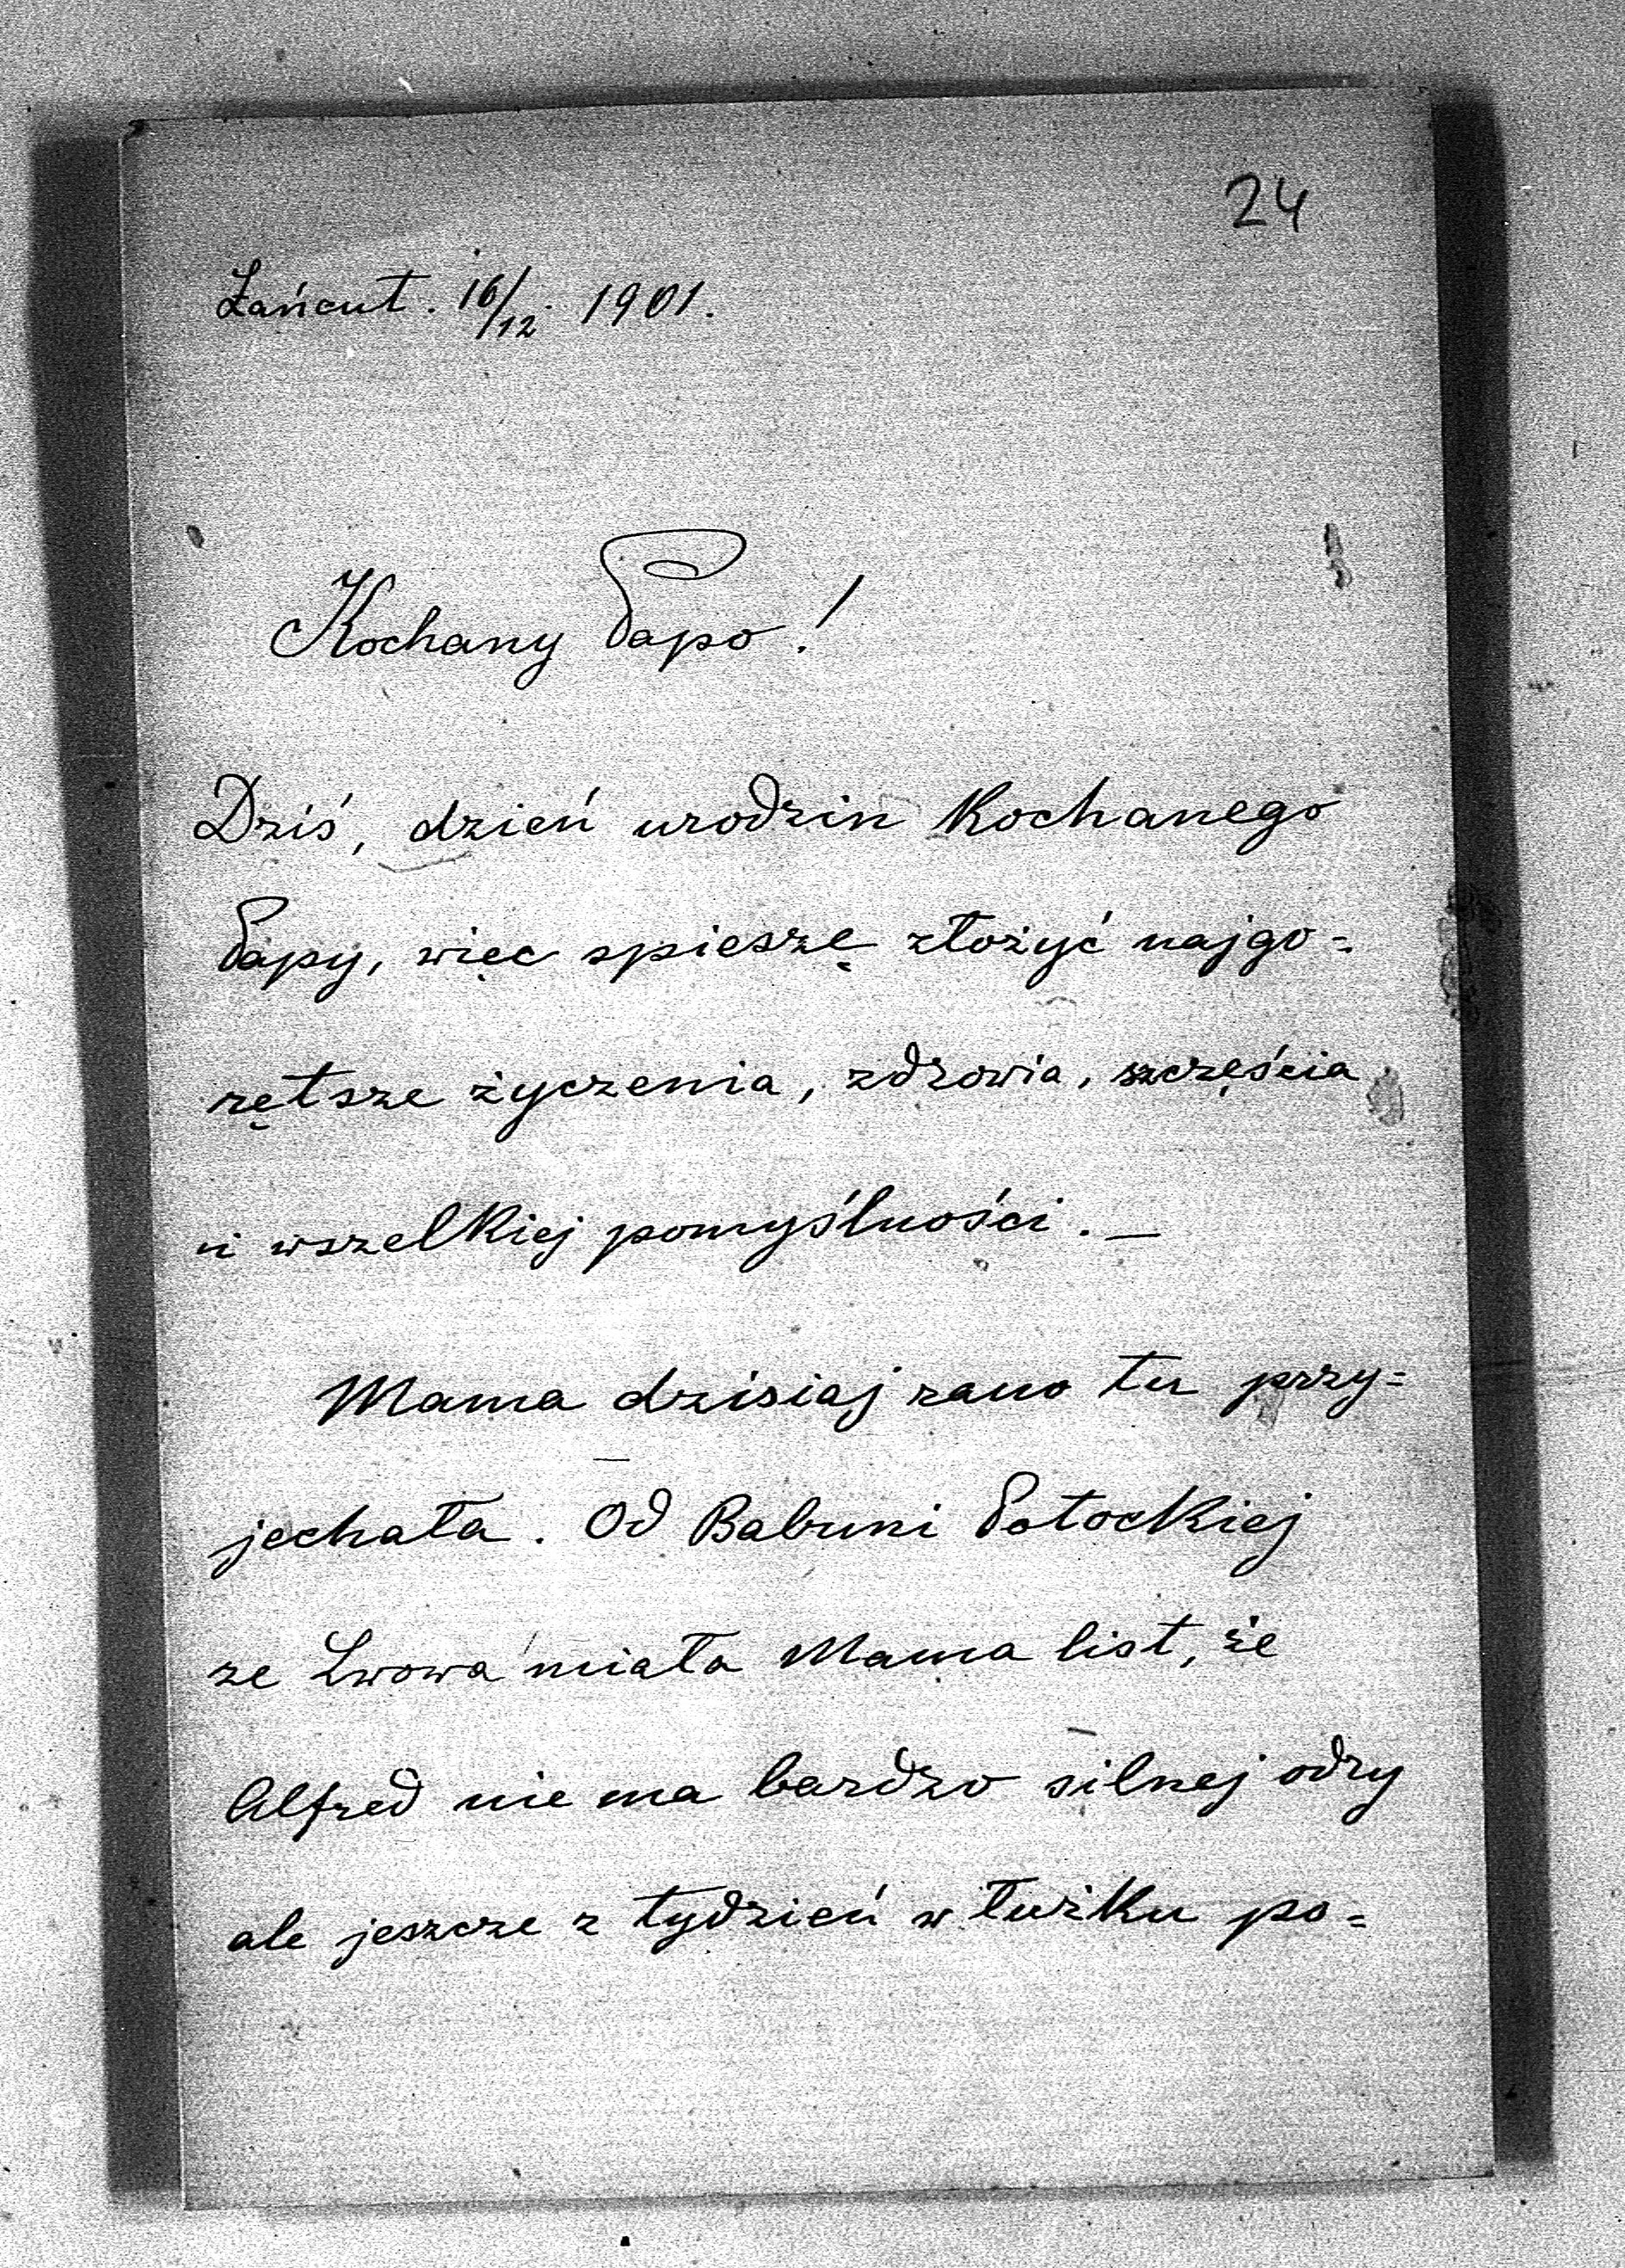 24
Łańcut. 16/12. 1901.
Kochany Papo!
Dziś, dzień urodzin Kochanego
Papy, więc spieszę złożyć najgo=
rętsze życzenia, zdrowia, szczęścia
i wszelkiej pomyślności. —
Mama dzisiaj rano tu przy=
jechała. Od Babuni Potockiej
ze Lwowa miała Mama list, że
Alfred nie ma bardzo silnej odry
ale jeszcze z tydzień w łużku po=